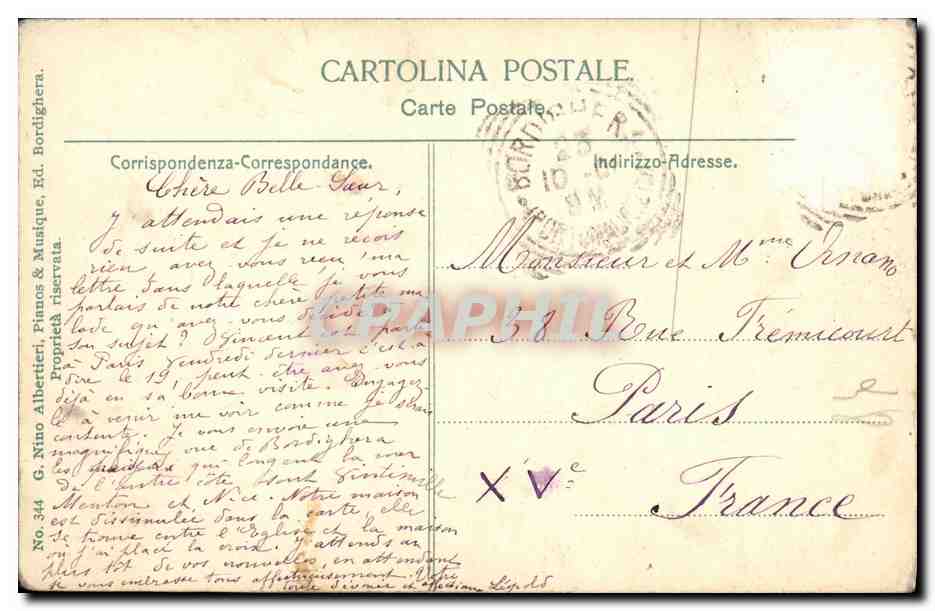 CARTOLINA POSTALE.
Carte Postale.
Corrispondenza-Correspondance.
Indirizzo-Adresse.
No. 344 G. Nino Albertieri, Pianos & Musique, Ed. Bordighera.
Proprietà riservata.
Chère Belle-Sœur,
J'attendais une réponse
de suite et je ne reçois
rien avez vous reçu ma
lettre dans laquelle je vous
parlais de notre chère petite ma
lade qu'avez vous décidé à
son sujet? Vincent est parti
à Paris vendredi dernier c'est à
dire le 19, peut être avez vous
déjà eu sa bonne visite. Engagez
le à venir me voir comme je serais
contente. Je vous envoie une
magnifique vue de Bordighera
les qui longent la mer
de l'autre côté sont Vintimille
Menton et Nice. Notre maison
est dissimulée dans la carte, elle
se trouve entre l'Eglise et la maison
où j'ai placé la croix. J'attends au
plus tôt de vos nouvelles, en attendant
je vous embrasse tous affectueusement. Votre
toute dévouée et Léopold
Monsieur et Mme Ornano
38 Rue Frémicourt
Paris
XVe
France
BORDIGHERA
10
CPAPHIL